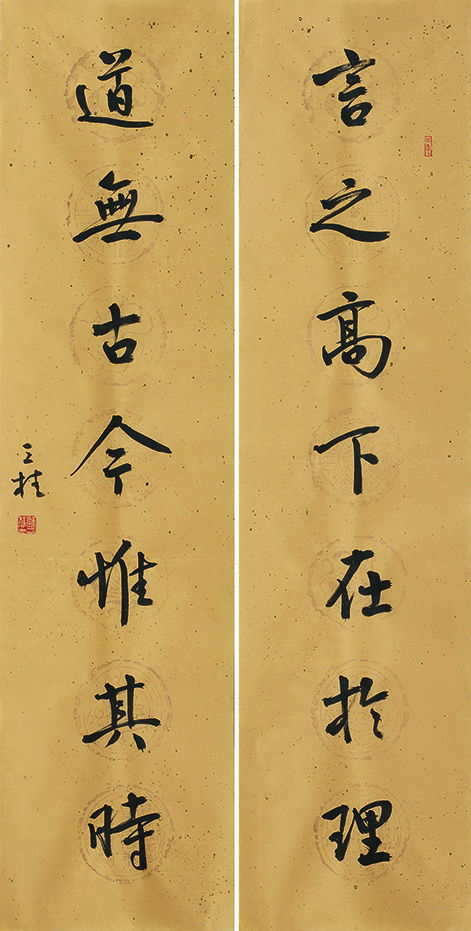 言之高下在於理
道無古今惟其時
三桂